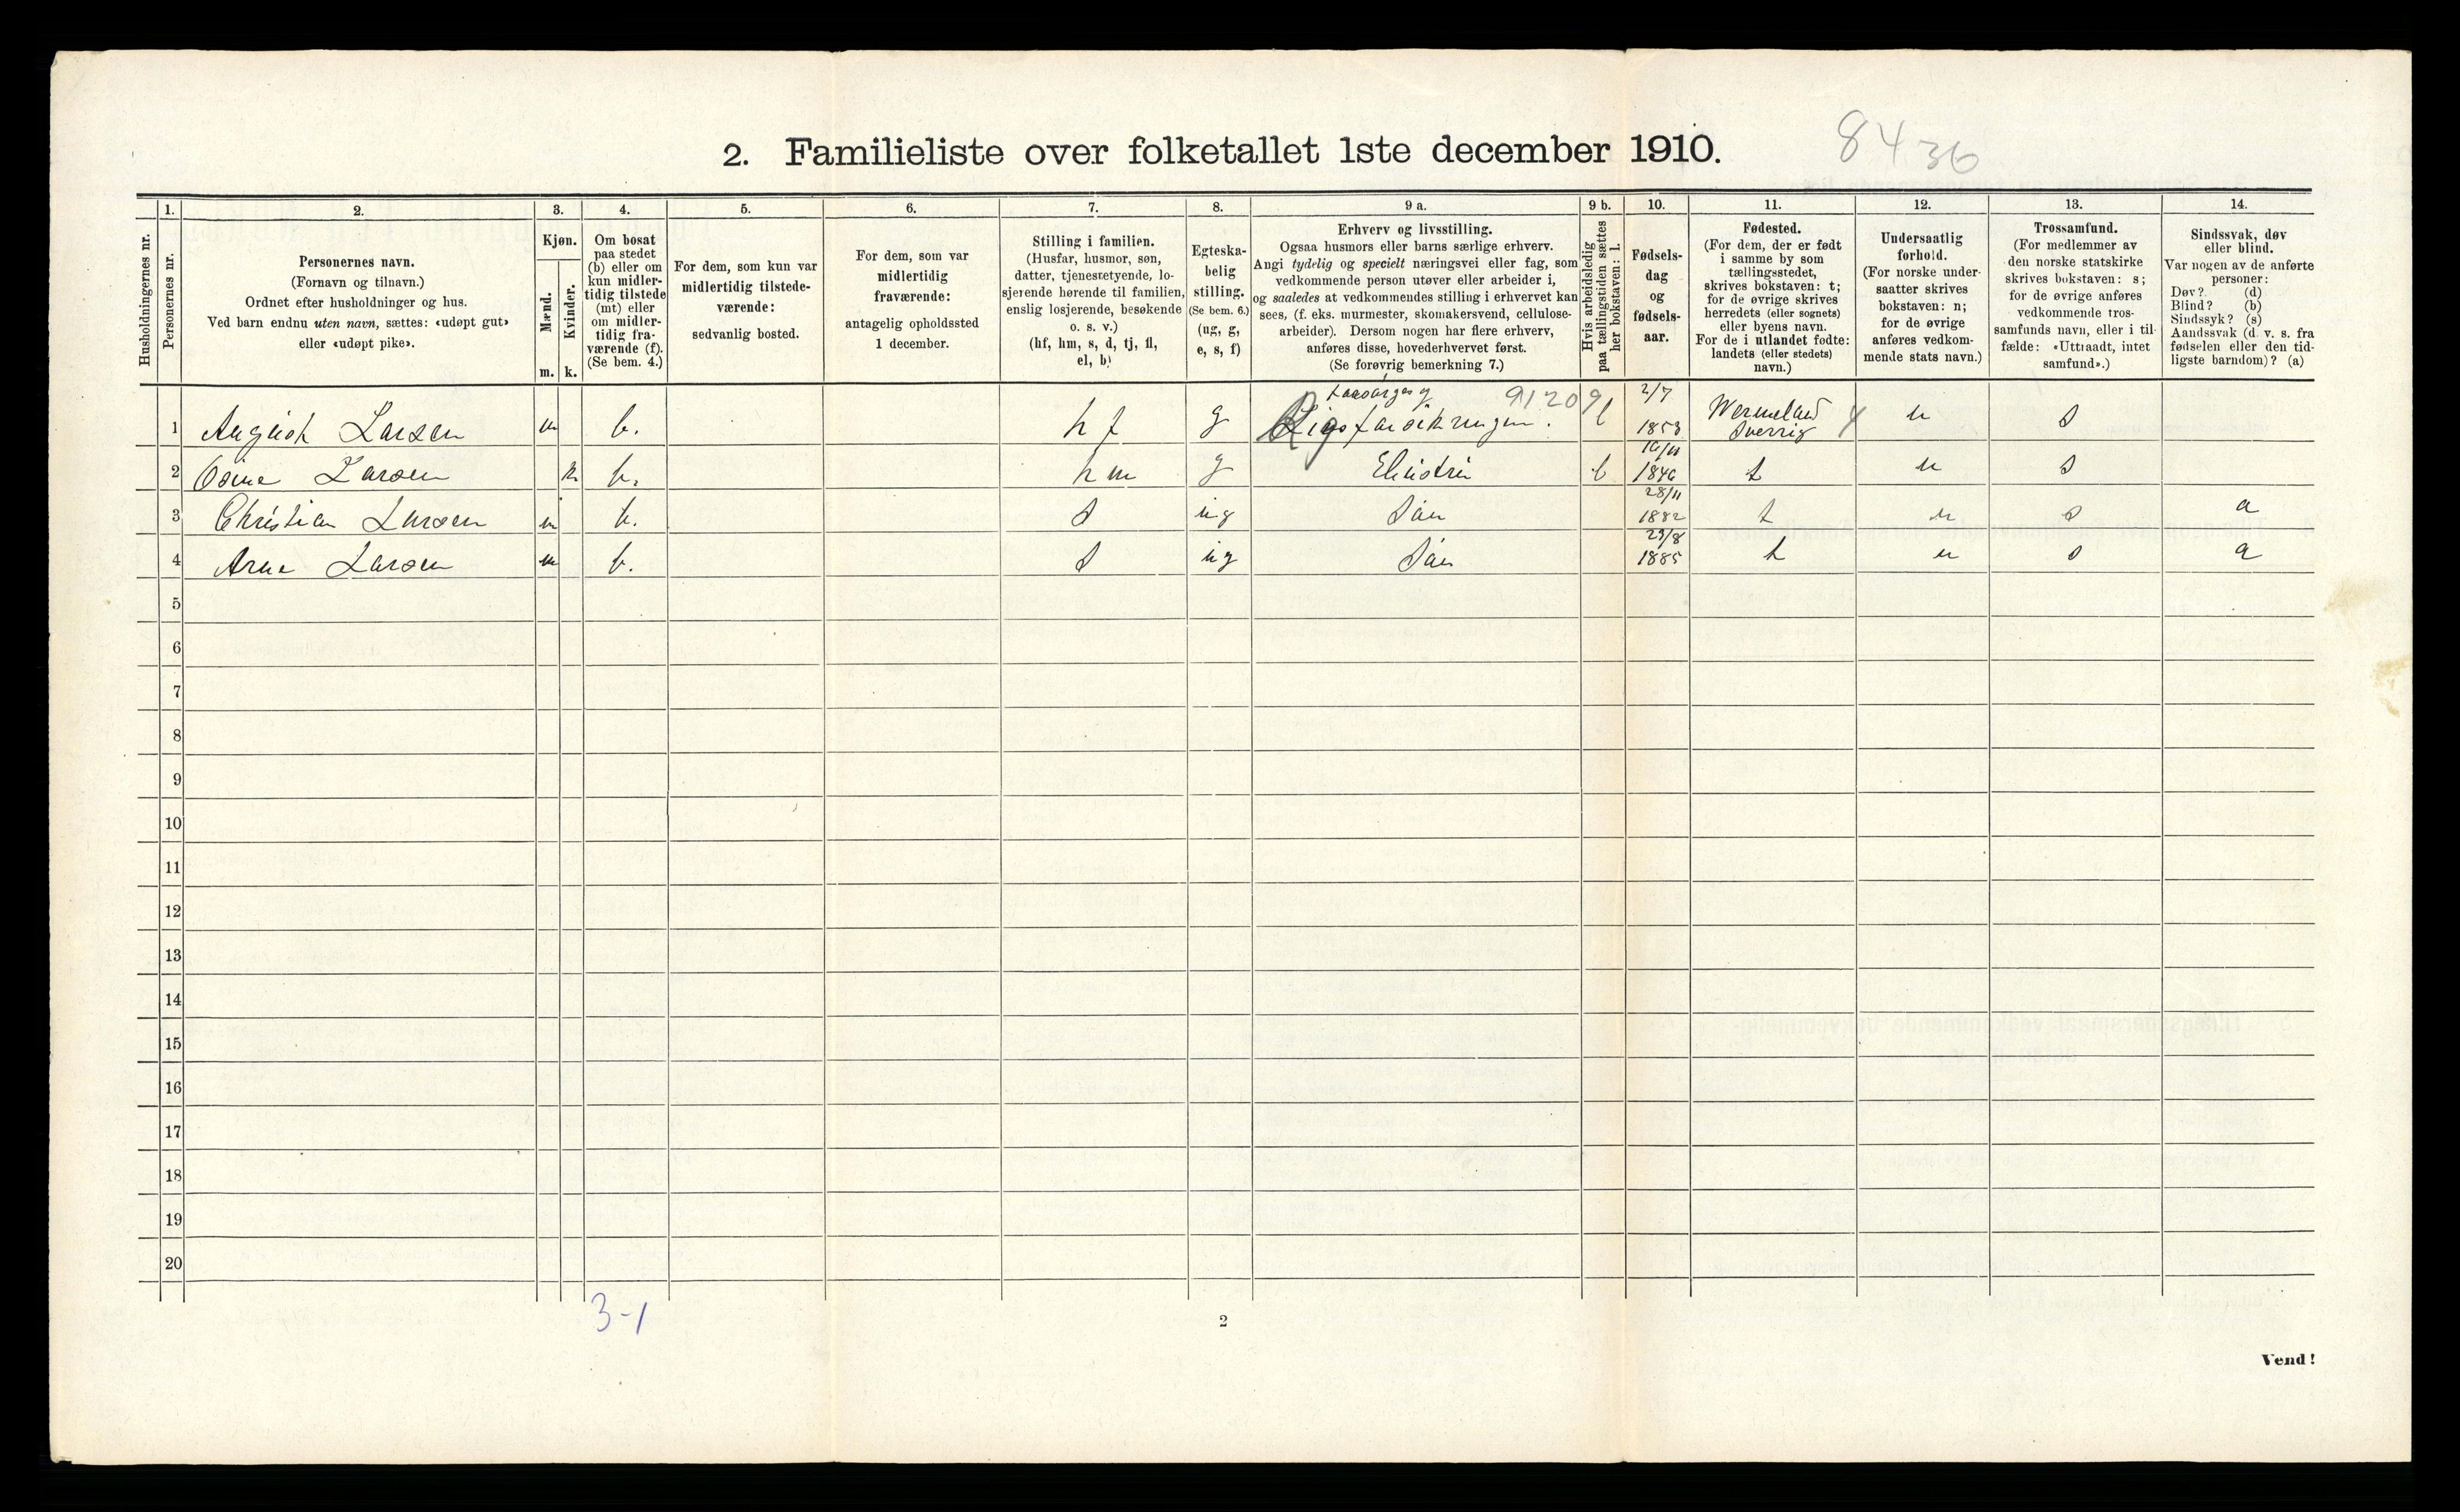 2. Familieliste over folketallet 1ste december 1910.
8436
Husholdningernes nr.
1.
Personernes nr.
2.
Personernes navn.
(Fornavn og tilnavn.)
Ordnet efter husholdninger og hus.
Ved barn endnu uten navn, sættes: «udøpt gut»
eller «udøpt pike».
3.
Kjøn.
Mænd.
m.
Kvinder.
k.
4.
Om bosat
paa stedet
(b) eller om
kun midler-
tidig tilstede
(mt) eller
om midler-
tidig fra-
værende (f).
(Se bem. 4.)
5.
For dem, som kun var
midlertidig tilstede-
værende:
sedvanlig bosted.
6.
For dem, som var
midlertidig
fraværende:
antagelig opholdssted
1 december.
7.
Stilling i familien.
(Husfar, husmor, søn,
datter, tjenestetyende, lo-
sjerende hørende til familien,
enslig losjerende, besøkende
o. s. v.)
(hf, hm, s, d, tj, fl,
el, b)
8.
Egteska-
belig
stilling.
(Se bem. 6.)
(ug, g,
e, s, f)
9 a.
Erhverv og livsstilling.
Ogsaa husmors eller barns særlige erhverv.
Angi tydelig og specielt næringsvei eller fag, som
vedkommende person utøver eller arbeider i,
og saaledes at vedkommendes stilling i erhvervet kan
sees, (f. eks. murmester, skomakersvend, cellulose-
arbeider). Dersom nogen har flere erhverv,
anføres disse, hovederhvervet først.
(Se forøvrig bemerkning 7.)
9 b.
Hvis arbeidsledig
paa tællingstiden sættes
her bokstaven: l.
10.
Fødsels-
dag
og
fødsels-
aar.
11.
Fødested.
(For dem, der er født
i samme by som
tællingsstedet,
skrives bokstaven: t;
for de øvrige skrives
herredets (eller sognets)
eller byens navn.
For de i utlandet fødte:
landets (eller stedets)
navn.)
12.
Undersaatlig
forhold.
(For norske under-
saatter skrives
bokstaven: n;
for de øvrige
anføres vedkom-
mende stats navn.)
13.
Trossamfund.
(For medlemmer av
den norske statskirke
skrives bokstaven: s;
for de øvrige anføres
vedkommende tros-
samfunds navn, eller i til-
fælde: «Uttraadt, intet
samfund».)
14.
Sindssvak, døv
eller blind.
Var nogen av de anførte
personer:
Døv? (d)
Blind? (b)
Sindssyk? (s)
Aandssvak (d. v. s. fra
fødselen eller den tid-
ligste barndom)? (a)
1 August Larsen m b. hf g 91209 l 2/7 1853 Wermeland Sverrig n s
2 Osine Larsen k b. hm g l 1846 t n s
3 Christian Larsen m b. s ug 28/11 1882 t n s a
4 Arne Larsen m b. s ug 29/8 1885 t n s a
5
6
7
8
9
10
11
12
13
14
15
16
17
18
19
20
3-1
2
Vend!